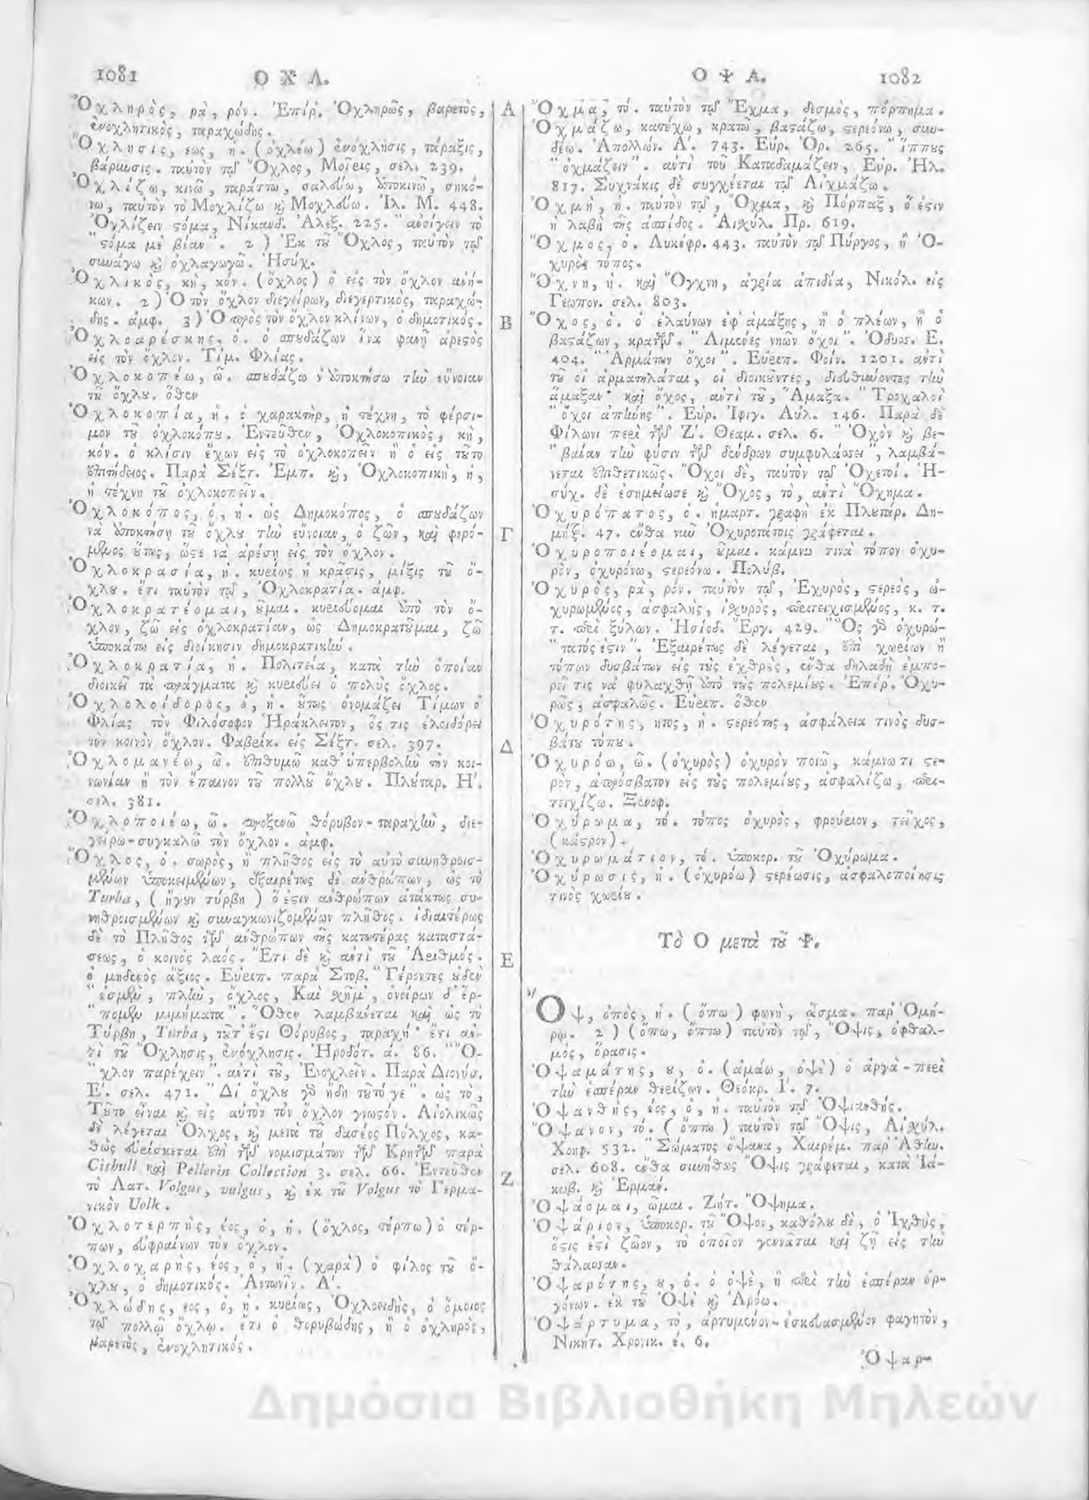 1081 Ο Χ Λ.
Ὀχληρὸς, ρὰ, ρόν. Ἐπίρ. Ὀχληρῶς, βαρετὸς,
ἐνοχλητικός, ταραχώδης.
Ὄχλησις, εως, ἡ. (ὀχλέω) ἐνόχλησις, τάραξις,
βάρεωσις. ταυτὸν τῷ Ὄχλος, Μοῖεις, σελ. 239.
Ὀχλίζω, κινῶ, ταράττω, σαλεύω, ὑποκινῶ, σηκό-
νω, ταυτὸν τὸ Μοχλίζω ϗ Μοχλεύω. Ἰλ. Μ. 448.
Ὀχλίζειν ϛόμα, Νίκανδ. Ἀλεξ. 225. "ἀνοίγειν τὸ
"ϛόμα μὲ βίαν". 2) Ἐκ τοῦ Ὄχλος, ταυτὸν τῷ
συνάγω ϗ ὀχλαγωγῶ. Ἡσύχ.
Ὀχλικὸς, κὴ, κόν. (ὄχλος) ὁ εἰς τὸν ὄχλον ἀνή-
κων. 2) Ὁ τὸν ὄχλον διεγείρων, διεγερτικὸς, ταραχώ-
δης. ἀμφ. 3) Ὁ πρὸς τὸν ὄχλον κλίνων, ὁ δημοτικός.
Ὀχλοαρέσκης, ὁ. ὁ σπουδάζων ἵνα φανῇ ἀρεϛὸς
εἰς τὸν ὄχλον. Τίμ. Φλίας.
Ὀχλοκοπέω, ῶ. σπουδάζω ν' ἀποκτήσω τὴν εὔνοιαν
τοῦ ὄχλου. ὅθεν
Ὀχλοκοπία, ἡ. ὁ χαρακτὴρ, ἡ τέχνη, τὸ φέρσι-
μον τοῦ ὀχλοκόπου. Ἐντεῦθεν, Ὀχλοκοπικὸς, κὴ,
κόν. ὁ κλίσιν ἔχων εἰς τὸ ὀχλοκοπεῖν ἢ ὁ εἰς τοῦτο
ἐπιτήδειος. Παρὰ Σέξτ. Ἐμπ. ϗ, Ὀχλοκοπικὴ, ἡ,
ἡ τέχνη τοῦ ὀχλοκοπεῖν.
Ὀχλοκόπος, ὁ, ἡ. ὡς Δημοκόπος, ὁ σπουδάζων
νὰ ἀποκτήσῃ τοῦ ὄχλου τὴν εὔνοιαν, ὁ ζῶν, καὶ φερό-
μενος οὕτως, ὥϛε νὰ ἀρέσῃ εἰς τὸν ὄχλον.
Ὀχλοκρασία, ἡ. κυρίως ἡ κρᾶσις, μίξις τοῦ ὄ-
χλου. ἔτι ταυτὸν τῷ, Ὀχλοκρατία. ἀμφ.
Ὀχλοκρατέομαι, οῦμαι. κυριεύομαι ὑπὸ τὸν ὄ-
χλον, ζῶ εἰς ὀχλοκρατίαν, ὡς Δημοκρατοῦμαι, ζῶ
ὑποκάτω εἰς διοίκησιν δημοκρατικήν.
Ὀχλοκρατία, ἡ. Πολιτεία, κατὰ τὴν ὁποίαν
διοικεῖ τὰ πράγματα ϗ κυριεύει ὁ πολὺς ὄχλος.
Ὀχλολοίδορος, ὁ, ἡ. οὕτως ὀνομάζει Τίμων ὁ
Φλίας τὸν Φιλόσοφον Ἡράκλειτον, ὅς τις ἐλοιδόρει
τὸν κοινὸν ὄχλον. Φαβρίκ. εἰς Σέξτ. σελ. 397.
Ὀχλομανέω, ῶ. ἐπιθυμῶ καθ' ὑπερβολὴν τὴν κοι-
νωνίαν ἢ τὸν ἔπαινον τοῦ πολλοῦ ὄχλου. Πλύταρ. Η'.
σελ. 381.
Ὀχλοποιέω, ῶ. προξενῶ θόρυβον-ταραχὴν, διε-
γείρω-συγκαλῶ τὸν ὄχλον. ἀμφ.
Ὄχλος, ὁ. σωρὸς, ἢ πλῆθος εἰς τὸ αὐτὸ συνηθροισ-
μένων ὑποκειμένων, ἐξαιρέτως δὲ ἀνθρώπων, ὡς τὸ
Turba, (ἤγουν τύρβη) ὅ ἐϛιν ἀνθρώπων ἀτάκτως συ-
νηθροισμένων ϗ συναγκωνιζομένων πλῆθος. ἰδιαιτέρως
δὲ τὸ Πλῆθος τῶν ἀνθρώπων τῆς κατωτέρας καταστά-
σεως, ὁ κοινὸς λαός. Ἔτι δὲ ϗ ἀντὶ τοῦ Ἀριθμός.
ὁ μηδενὸς ἄξιος. Εὐριπ. παρὰ Στοβ. "Γέροντες οὐδέν
"ἐσμεν, πλὴν, ὄχλος, Καὶ χῆμ', ὀνείρων δ' ἕρ-
"πομεν μιμήματα". Ὅθεν λαμβάνεται καὶ ὡς τὸ
Τύρβη, Turba, τοῦτ' ἔϛι Θόρυβος, ταραχή· ἔτι ἀν-
τὶ τοῦ Ὄχλησις, ἐνόχλησις. Ἡροδότ. ά. 86. "Ὄ-
"χλον παρέχειν". ἀντὶ τοῦ, Ἐνοχλεῖν. Παρὰ Διονύσ.
Ε'. σελ. 471. "Δι' ὄχλου γὰρ ἤδη τοῦτό γε". ὡς τὸ,
Τοῦτο εἶναι ϗ εἰς αὐτὸν τὸν ὄχλον γνωϛόν. Αἰολικῶς
δὲ λέγεται Ὄλχος, ϗ μετὰ τοῦ δασέος Πόλχος, κα-
θὼς εὑρίσκεται ἐπὶ τῶν νομισμάτων τῶν Κρητῶν παρὰ
Cishull καὶ Pellerin Collection 3. σελ. 66. Ἐντεῦθεν
τὸ Λατ. Volgus, vulgus, ϗ ἐκ τοῦ Volgus τὸ Γερμα-
νικὸν Uolk.
Ὀχλοτερπὴς, έος, ὁ, ἡ. (ὄχλος, τέρπω) ὁ τέρ-
πων, εὐφραίνων τὸν ὄχλον.
Ὀχλοχαρὴς, έος, ὁ, ἡ. (χαρὰ) ὁ φίλος τοῦ ὄ-
χλου, ὁ δημοτικός. Ἀντωνῖν. Α'.
Ὀχλώδης, εος, ὁ, ἡ. κυρίως, Ὀχλοειδὴς, ὁ ὅμοιος
τῷ πολλῷ ὄχλῳ. ἔτι ὁ θορυβώδης, ἢ ὁ ὀχληρὸς,
βαρετὸς, ἐνοχλητικός.
Α
Β
Γ
Δ
Ε
Ζ
Ο Ψ Α. 1082
Ὄχμα, τό. ταυτὸν τῷ Ἔχμα, δεσμὸς, πόρπημα.
Ὀχμάζω, κατέχω, κρατῶ, βαϛάζω, ϛερεόνω, συν-
δέω. Ἀπολλών. Α'. 743. Εὐρ. Ὀρ. 265. "ἵππους
"ὀχμάζειν". ἀντὶ τοῦ Καταδαμάζειν, Εὐρ. Ἠλ.
817. Συχνάκις δὲ συγχέεται τῷ Αἰχμάζω.
Ὀχμὴ, ἡ. ταυτὸν τῷ, Ὄχμα, ϗ Πόρπαξ, ὅ ἐϛιν
ἡ λαβὴ τῆς ἀσπίδος. Αἰσχύλ. Πρ. 619.
Ὄχμος, ὁ. Λυκόφρ. 443. ταυτὸν τῷ Πύργος, ἢ Ὀ-
χυρὸς τόπος.
Ὄχνη, ἡ. καὶ Ὄγχνη, ἀγρία ἀπιδία, Νικόλ. εἰς
Γεωπον. σελ. 803.
Ὄχος, ὁ. ὁ ἐλαύνων ἐφ' ἁμάξης, ἢ ὁ πλέων, ἢ ὁ
βαϛάζων, κρατῶν. "Λιμένες νηῶν ὄχοι". Ὀδυσ. Ε.
404. "Ἁρμάτων ὄχοι". Εὐριπ. Φοίν. 1201. ἀντὶ
τοῦ οἱ ἁρματηλάται, οἱ διοικοῦντες, διευθύνοντες τὴν
ἅμαξαν· καὶ ὄχος, ἀντὶ τοῦ, Ἅμαξα. "Τροχαλοὶ
"ὄχοι ἀπήνης". Εὐρ. Ἰφιγ. Αὐλ. 146. Παρὰ δὲ
Φίλωνι περὶ τῶν Ζ'. Θεαμ. σελ. 6. "Ὀχὸν ϗ βε-
"βαίαν τὴν φύσιν τῶν δένδρων συμφυλάσσει", λαμβά-
νεται ἐπιθετικῶς. Ὄχοι δὲ, ταυτὸν τῷ Ὀχετοί. Ἡ-
σύχ. δὲ ἐσημείωσε ϗ Ὄχος, τὸ, ἀντὶ Ὄχημα.
Ὀχυρόπατος, ὁ. ἡμαρτ. γραφὴ ἐκ Πλυτάρ. Δη-
μήτ. 47. ἔνθα νῦν Ὀχυροτάτοις γράφεται.
Ὀχυροποιέομαι, οῦμαι. κάμνω τινὰ τόπον ὀχυ-
ρὸν, ὀχυρόνω, ϛερεόνω. Πολύβ.
Ὀχυρὸς, ρὰ, ρόν. ταυτὸν τῷ, Ἐχυρὸς, ϛερεὸς, ὠ-
χυρωμένος, ἀσφαλὴς, ἰσχυρὸς, περιτειχισμένος, κ. τ.
τ. περὶ ξύλων. Ἡσίοδ. Ἔργ. 429. "Ὃς γὰρ ὀχυρώ-
"τατός ἐϛιν". Ἐξαιρέτως δὲ λέγεται, ἐπὶ χωρίων ἢ
τόπων δυσβάτων εἰς τοὺς ἐχθροὺς, ἔνθα δηλαδὴ ἐμπο-
ρεῖ τις νὰ φυλαχθῇ ὑπὸ τοὺς πολεμίους. Ἐπίρ. Ὀχυ-
ρῶς, ἀσφαλῶς. Εὐριπ. ὅθεν
Ὀχυρότης, ητος, ἡ. ϛερεότης, ἀσφάλεια τινὸς δυσ-
βάτου τόπου.
Ὀχυρόω, ῶ. (ὀχυρὸς) ὀχυρὸν ποιῶ, κάμνω τι ϛε-
ρὸν, ἀπρόσβατον εἰς τοὺς πολεμίους, ἀσφαλίζω, περι-
τειχίζω. Ξενοφ.
Ὀχύρωμα, τό. τόπος ὀχυρὸς, φρούριον, τεῖχος,
(κάϛρον).
Ὀχυρωμάτιον, τό. ὑποκορ. τοῦ Ὀχύρωμα.
Ὀχύρωσις, ἡ. (ὀχυρόω) ϛερέωσις, ἀσφαλοποίησις
τινὸς χωρίου.
Τὸ Ο μετὰ τοῦ Ψ.
Ὄψ, ὀπὸς, ἡ. (ὄπω) φωνὴ, ᾆσμα. παρ' Ὁμή-
ρῳ. 2) (ὄπω, ὄπτω) ταυτὸν τῷ, Ὄψις, ὀφθαλ-
μὸς, ὅρασις.
Ὀψαμάτης, ου, ὁ. (ἀμάω, ὀψὲ) ὁ ἀργὰ-περὶ
τὴν ἑσπέραν θερίζων. Θεόκρ. Ι'. 7.
Ὀψανθὴς, έος, ὁ, ἡ. ταυτὸν τῷ Ὀψιανθής.
Ὄψανον, τό. (ὄπτω) ταυτὸν τῷ Ὄψις, Αἰσχύλ.
Χοηφ. 532. "Σώματος ὄψανα, Χαιρέμ. παρ' Ἀθην.
σελ. 608. ἔνθα συνήθως Ὄψις γράφεται, κατὰ Ἰά-
κωβ. ϗ Ἑρμαν.
Ὀψάομαι, ῶμαι. Ζήτ. Ὄψημα.
Ὀψάριον, ὑποκορ. τοῦ Ὄψον, καθόλου δὲ, ὁ Ἰχθὺς,
ὅϛις ἐϛὶ ζῶον, τὸ ὁποῖον γεννᾶται καὶ ζῇ εἰς τὴν
θάλασσαν.
Ὀψαρότης, ου, ὁ. ὁ ὀψὲ, ἢ περὶ τὴν ἑσπέραν ὀρ-
γόνων. ἐκ τοῦ Ὀψὲ ϗ Ἀρόω.
Ὀψάρτυμα, τὸ, ἀρτυμένον-ἐσκευασμένον φαγητὸν,
Νικήτ. Χρονικ. έ. 6.
Ὀψαρ-
Δημόσια Βιβλιοθήκη Μηλεών